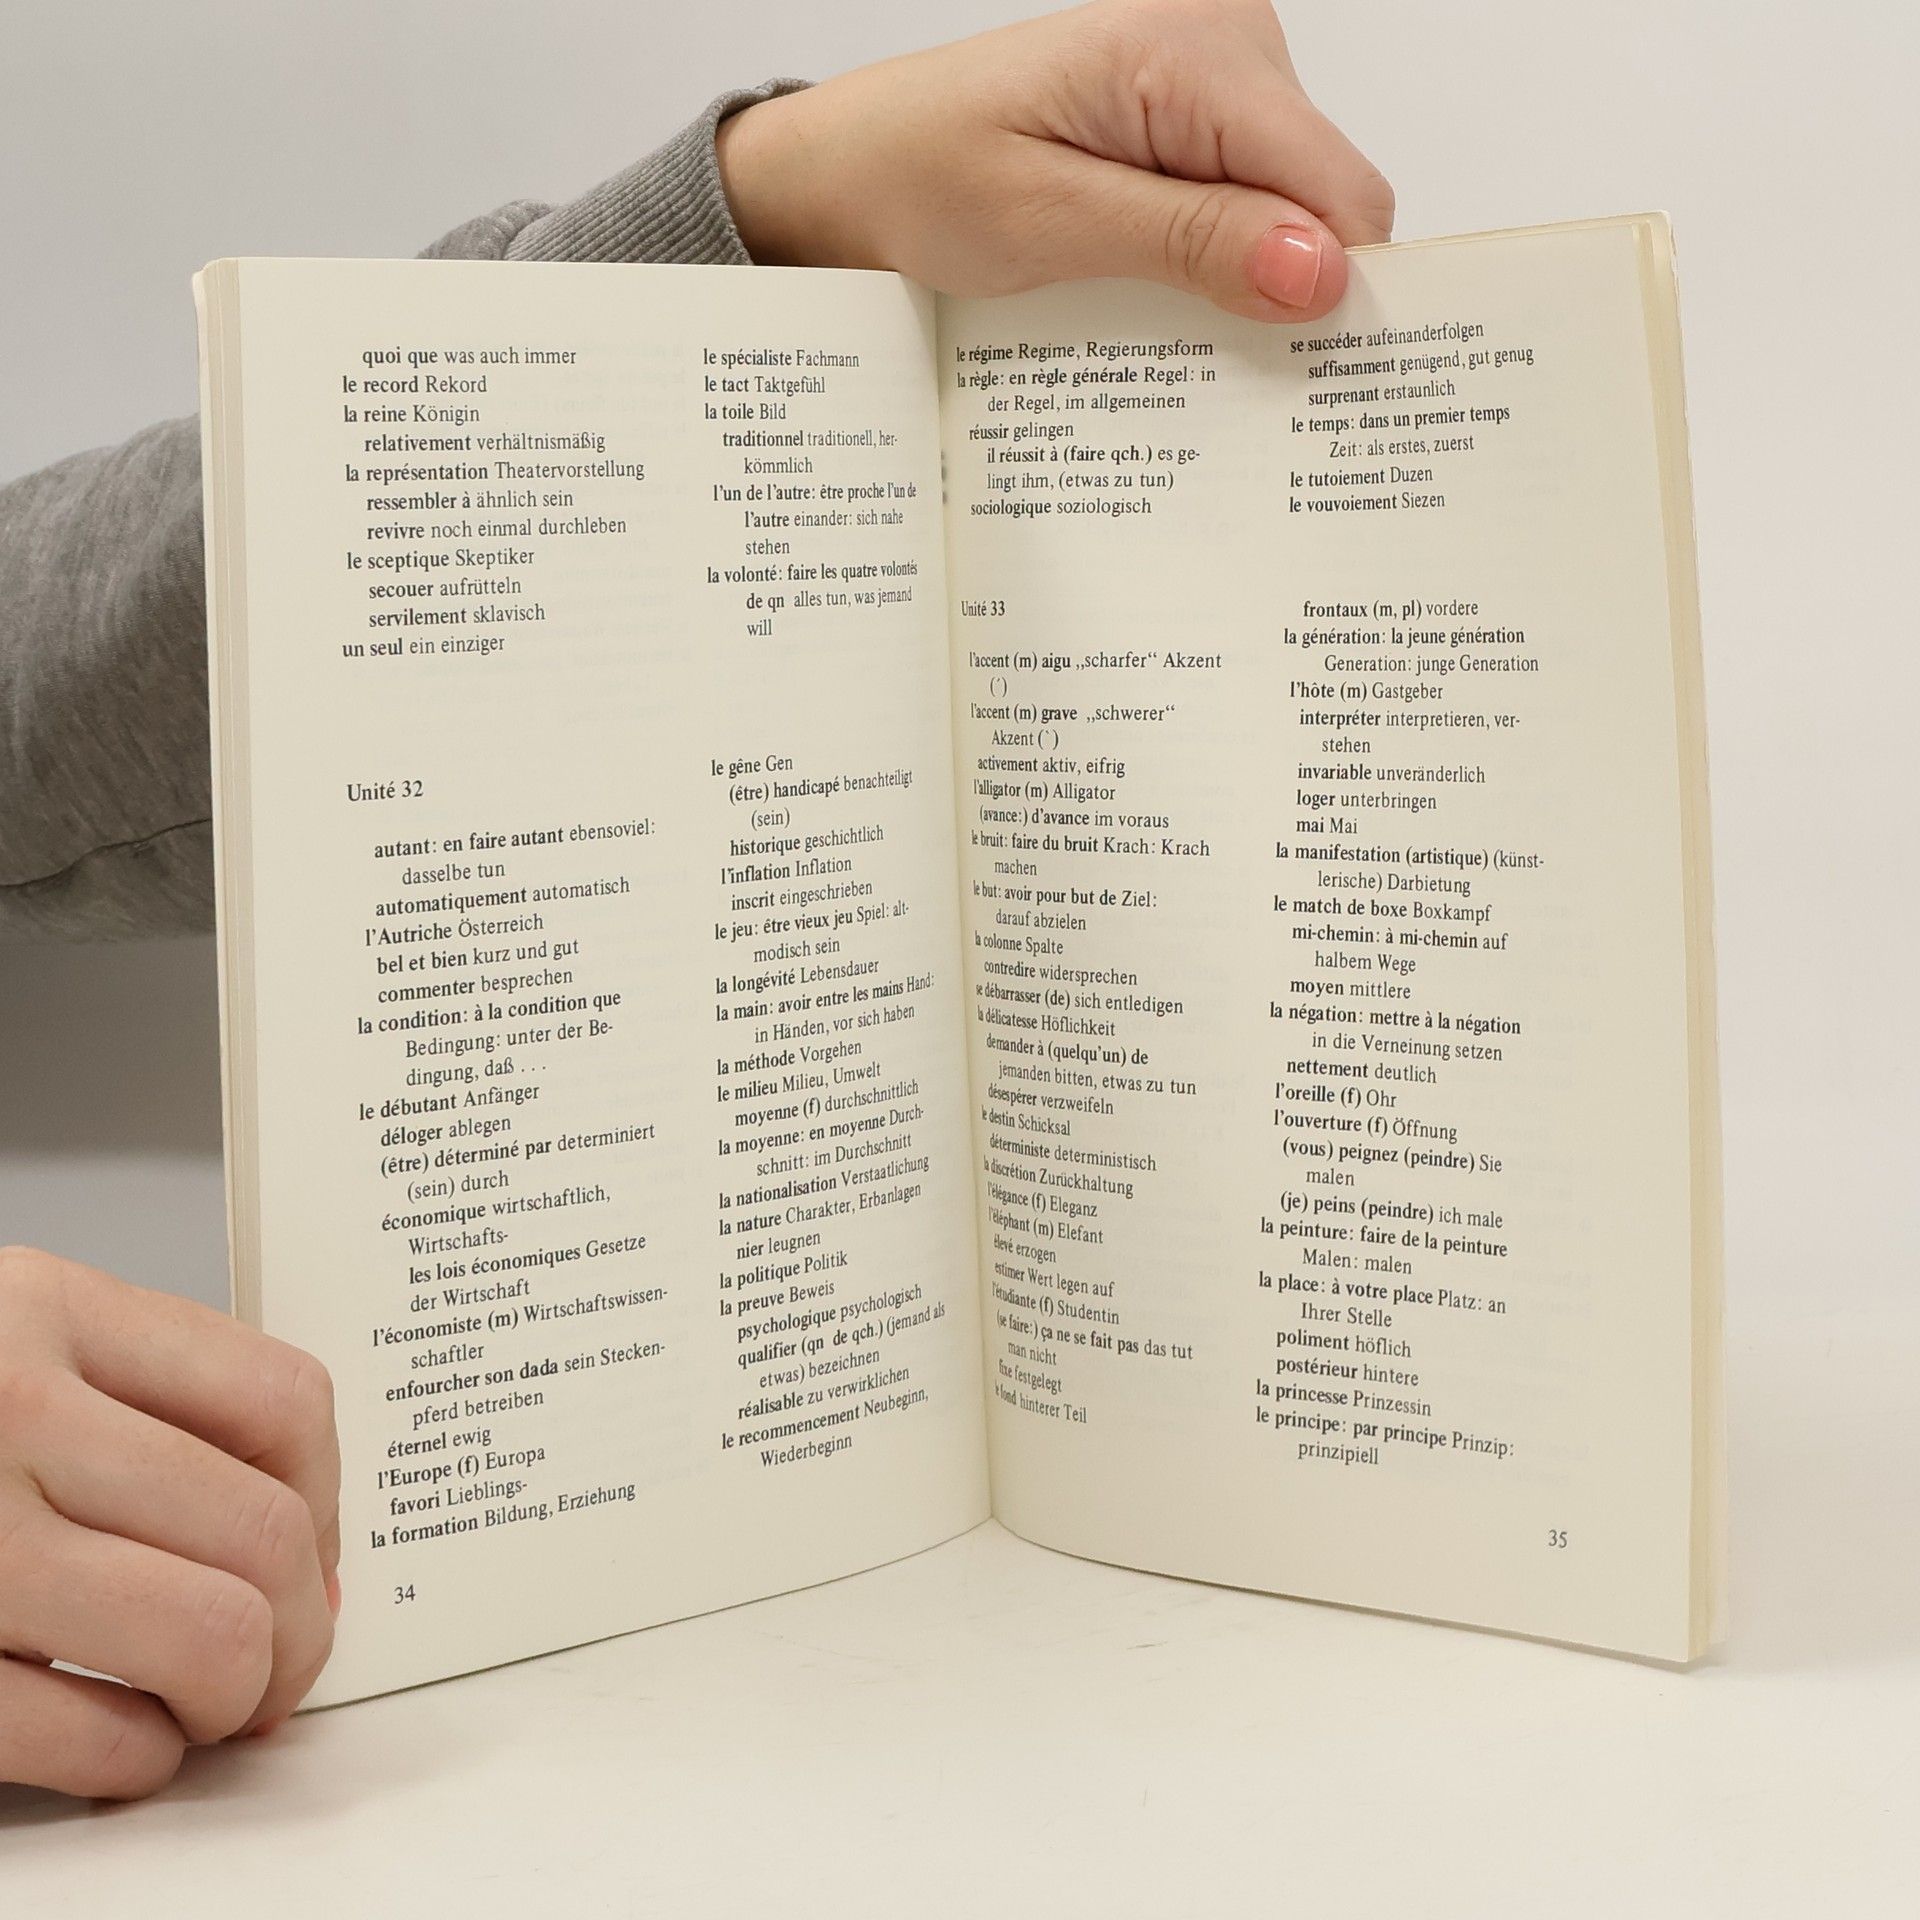 quoi que was auch immer
le record Rekord
la reine Königin
relativement verhältnismäßig
la représentation Theatervorstellung
ressembler à ähnlich sein
revivre noch einmal durchleben
le sceptique Skeptiker
secouer aufrütteln
servilement sklavisch
un seul ein einziger
le spécialiste Fachmann
le tact Taktgefühl
la toile Bild
traditionnel traditionell, her-
kömmlich
l'un de l'autre: être proche l'un de
l'autre einander: sich nahe
stehen
la volonté: faire les quatre volontés
de qn alles tun, was jemand
will
Unité 32
autant: en faire autant ebensoviel:
dasselbe tun
automatiquement automatisch
l'Autriche Österreich
bel et bien kurz und gut
commenter besprechen
la condition: à la condition que
Bedingung: unter der Be-
dingung, daß . . .
le débutant Anfänger
déloger ablegen
(être) déterminé par determiniert
(sein) durch
économique wirtschaftlich,
Wirtschafts-
les lois économiques Gesetze
der Wirtschaft
l'économiste (m) Wirtschaftswissen-
schaftler
enfourcher son dada sein Stecken-
pferd betreiben
éternel ewig
l'Europe (f) Europa
favori Lieblings-
la formation Bildung, Erziehung
le gêne Gen
(être) handicapé benachteiligt
(sein)
historique geschichtlich
l'inflation Inflation
inscrit eingeschrieben
le jeu: être vieux jeu Spiel: alt-
modisch sein
la longévité Lebensdauer
la main: avoir entre les mains Hand:
in Händen, vor sich haben
la méthode Vorgehen
le milieu Milieu, Umwelt
moyenne (f) durchschnittlich
la moyenne: en moyenne Durch-
schnitt: im Durchschnitt
la nationalisation Verstaatlichung
la nature Charakter, Erbanlagen
nier leugnen
la politique Politik
la preuve Beweis
psychologique psychologisch
qualifier (qn de qch.) (jemand als
etwas) bezeichnen
réalisable zu verwirklichen
le recommencement Neubeginn,
Wiederbeginn
34
le régime Regime, Regierungsform
la règle: en règle générale Regel: in
der Regel, im allgemeinen
réussir gelingen
il réussit à (faire qch.) es ge-
lingt ihm, (etwas zu tun)
sociologique soziologisch
se succéder aufeinanderfolgen
suffisamment genügend, gut genug
surprenant erstaunlich
le temps: dans un premier temps
Zeit: als erstes, zuerst
le tutoiement Duzen
le vouvoiement Siezen
Unité 33
l'accent (m) aigu „scharfer“ Akzent
(´)
l'accent (m) grave „schwerer“
Akzent (`)
activement aktiv, eifrig
l'alligator (m) Alligator
(avance:) d'avance im voraus
le bruit: faire du bruit Krach: Krach
machen
le but: avoir pour but de Ziel:
darauf abzielen
la colonne Spalte
contredire widersprechen
se débarrasser (de) sich entledigen
la délicatesse Höflichkeit
demander à (quelqu'un) de
jemanden bitten, etwas zu tun
désespérer verzweifeln
le destin Schicksal
déterministe deterministisch
la discrétion Zurückhaltung
l'élégance (f) Eleganz
l'éléphant (m) Elefant
élevé erzogen
estimer Wert legen auf
l'étudiante (f) Studentin
(se faire:) ça ne se fait pas das tut
man nicht
fixe festgelegt
le fond hinterer Teil
frontaux (m, pl) vordere
la génération: la jeune génération
Generation: junge Generation
l'hôte (m) Gastgeber
interpréter interpretieren, ver-
stehen
invariable unveränderlich
loger unterbringen
mai Mai
la manifestation (artistique) (künst-
lerische) Darbietung
le match de boxe Boxkampf
mi-chemin: à mi-chemin auf
halbem Wege
moyen mittlere
la négation: mettre à la négation
in die Verneinung setzen
nettement deutlich
l'oreille (f) Ohr
l'ouverture (f) Öffnung
(vous) peignez (peindre) Sie
malen
(je) peins (peindre) ich male
la peinture: faire de la peinture
Malen: malen
la place: à votre place Platz: an
Ihrer Stelle
poliment höflich
postérieur hintere
la princesse Prinzessin
le principe: par principe Prinzip:
prinzipiell
35